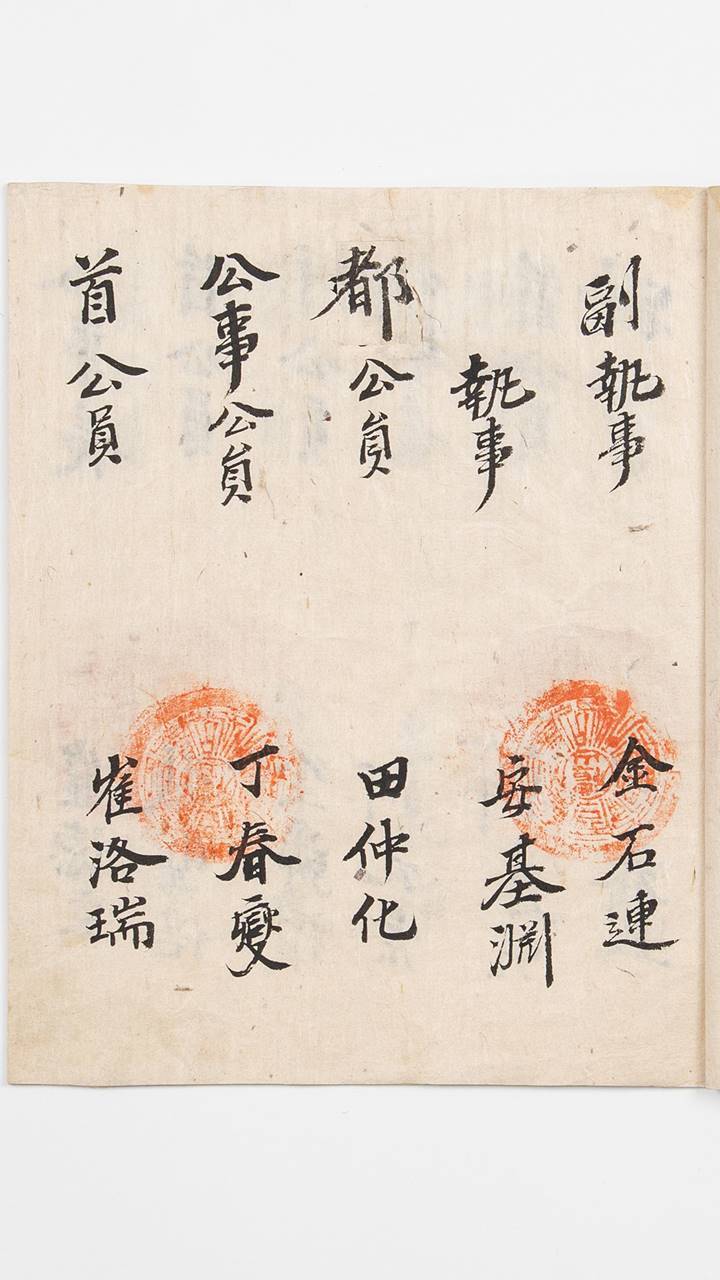 副執事 金石連
執事 安基淵
都公員 田仲化
公事公員 丁春燮
首公員 崔洛瑞